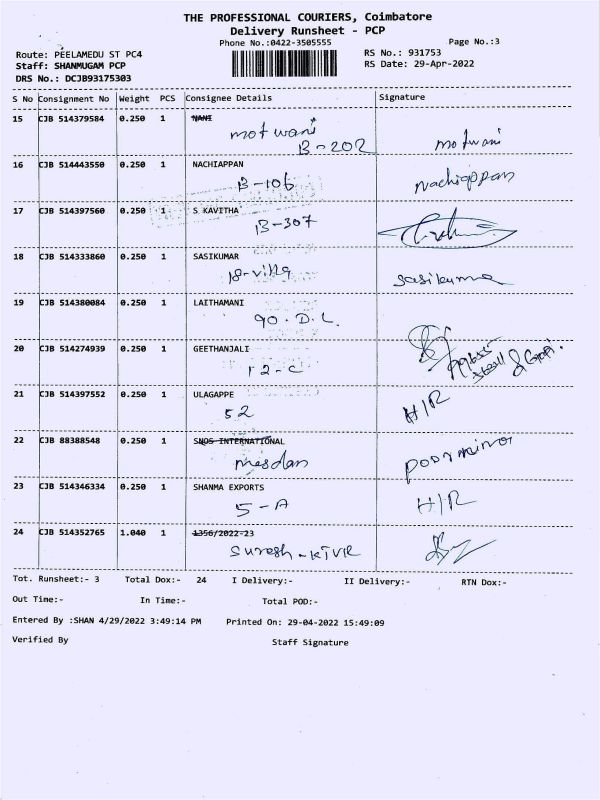 THE PROFESSIONAL COURIERS, Coimbatore
Delivery Runsheet - PCP
Phone No.:0422-3505555
Page No.:3
Route: PEELAMEDU ST PC4
RS No.: 931753
Staff: SHANMUGAM PCP
RS Date: 29-Apr-2022
DRS No.: DCJB93175303
S No Consignment No Weight PCS Consignee Details Signature
15 CJB 514379584 0.250 1 NANI
motwani
B-202 motwani
16 CJB 514443550 0.250 1 NACHIAPPAN
B-106 Nachiappan
17 CJB 514397560 0.250 1 S KAVITHA
B-307
18 CJB 514333860 0.250 1 SASIKUMAR
18-villa sasikuma
19 CJB 514380084 0.250 1 LAITHAMANI
90. D.L.
20 CJB 514274939 0.250 1 GEETHANJALI
12-C
21 CJB 514397552 0.250 1 ULAGAPPE
52 H/R
22 CJB 88388548 0.250 1 SNOS INTERNATIONAL
mesdan poornima
23 CJB 514346334 0.250 1 SHANMA EXPORTS
5-A H/R
24 CJB 514352765 1.040 1 1356/2022-23
Suresh-KTVR
Tot. Runsheet:- 3 Total Dox:- 24 I Delivery:- II Delivery:- RTN Dox:-
Out Time:- In Time:- Total POD:-
Entered By :SHAN 4/29/2022 3:49:14 PM Printed On: 29-04-2022 15:49:09
Verified By Staff Signature